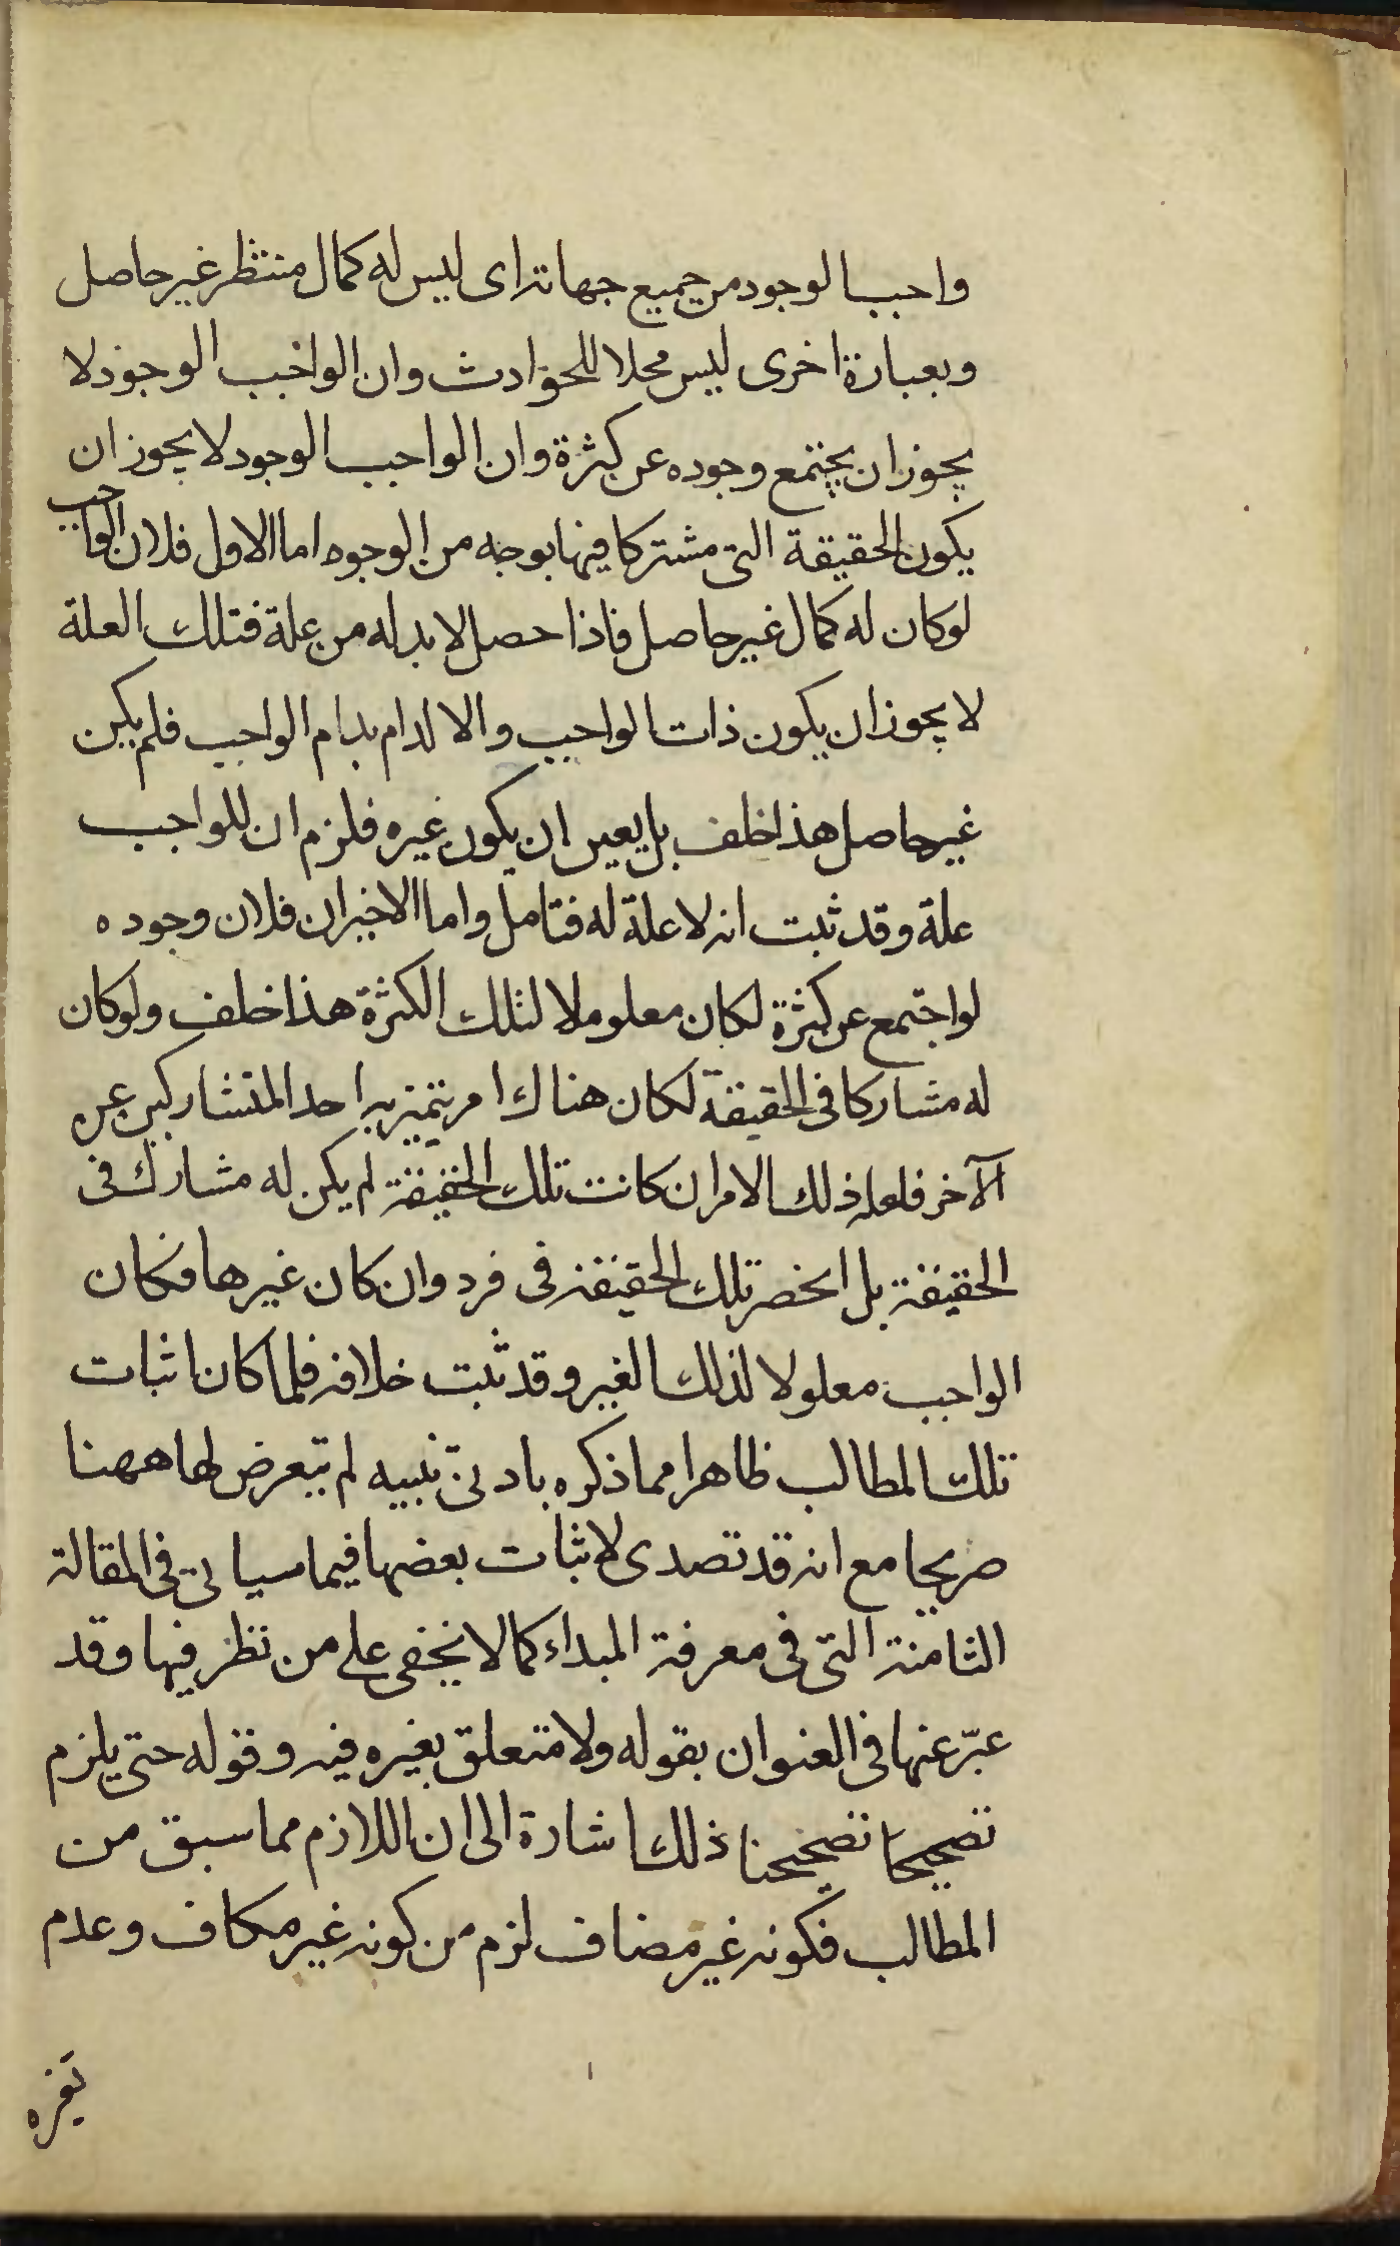 واجب الوجود من جميع جهاته اى ليس له كمال منتظر غير حاصل
وبعبارة اخرى ليس محلا للحوادث وان الواجب الوجود لا
يجوز ان يجتمع وجوده عن كثرة وان الواجب الوجود لا يجوز ان
يكون الحقيقة التى مشتركا فيها بوجه من الوجوه اما الاول فلان الواجب
لو كان له كمال غير حاصل فاذا حصل لا بد له من علة فتلك العلة
لا يجوز ان يكون ذات الواجب والا لدام بدام الواجب فلم يكن
غير حاصل هذا خلف بل يعين ان يكون غيره فلزم ان للواجب
علة وقد ثبت انه لا علة له فتامل واما الاخيران فلان وجوده
لو اجتمع عن كثرة لكان معلوملا لتلك الكثرة هذا خلف ولو كان
له مشاركا فى الحقيقة لكان هناك امر يتميز به احد المتشاركين عن
الآخر فلعله ذلك الامر ان كانت تلك الحقيقة لم يكن له مشارك فى
الحقيقة بل انحصر تلك الحقيقة فى فرد وان كان غيرها فكان
الواجب معلولا لذلك الغير وقد ثبت خلافه فلما كان اثبات
تلك المطالب ظاهرا مما ذكره بادنى تنبيه لم يتعرض لها ههنا
صريحا مع انه قد تصدى لاثبات بعضها فيما سياتى فى المقالة
الثامنة التى فى معرفة المبداء كما لا يخفى على من نظر فيها وقد
عبّر عنها فى العنوان بقوله ولا متعلق بغيره فيه وقوله حتى يلزم
تصحيحا تصحيحنا ذلك اشارة الى ان اللازم مما سبق من
المطالب فكونه غير مضاف لزم من كونه غير مكاف وعدم